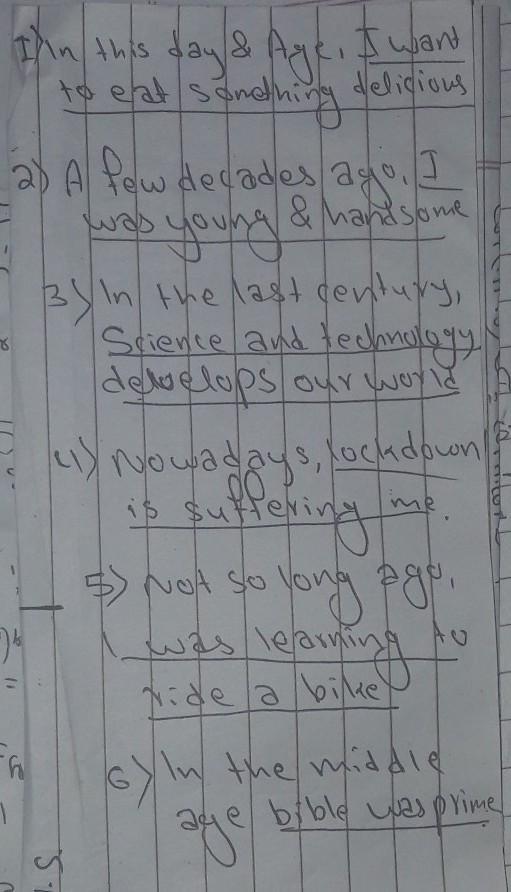 1) In this day & Age, I want
to eat something delicious
2) A few decades ago, I
was young & handsome
3) In the last century,
Science and technology
devoelops our world
4) Nowadays, lockdown
is suffering me.
5) Not so long ago,
I was learning to
ride a bike
6) In the middle
age bible was prime